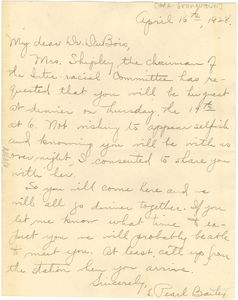 April 16th, 1928.
My dear Dr. DuBois,
Mrs. Shipley the chairman of
the Inter-racial Committee has re-
quested that you will be her guest
at dinner on Thursday, the 19th
at 6. Not wishing to appear selfish
and knowing you will be with us
over night, I consented to share you
with her.
So you will come here and we
will all go dinner together. If you
let me know what time to ex-
pect you we will probably be able
to meet you. At least, call up from
the station when you arrive.
Sincerely,
L. Pearl Bailey